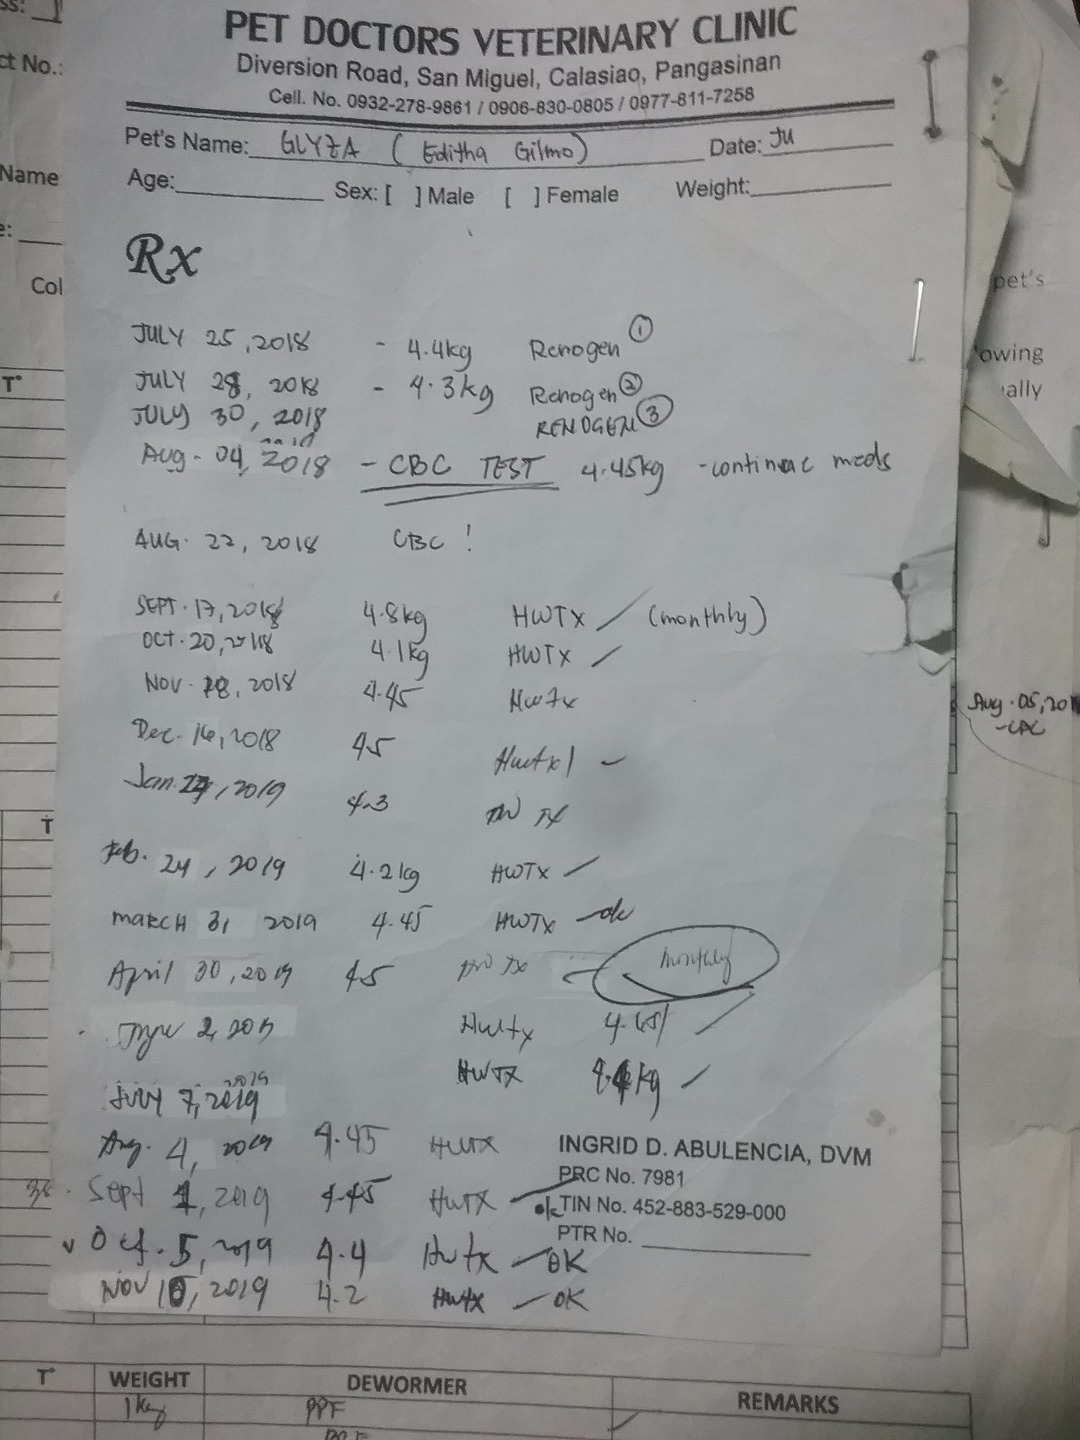 ss:
ct No.:
Name
e:
Col
T°
T
PET DOCTORS VETERINARY CLINIC
Diversion Road, San Miguel, Calasiao, Pangasinan
Cell. No. 0932-278-9861 / 0906-830-0805 / 0977-811-7258
Pet's Name: GLYZA ( Editha Gilmo) Date: Ju
Age: Sex: [ ] Male [ ] Female Weight:
Rx
JULY 25, 2018 - 4.4kg Renogen 1
JULY 28, 2018 - 4.3kg Renogen 2
JULY 30, 2018 RENOGEN 3
Aug - 04, 2018 - CBC TEST 4.45kg - continue meds
AUG. 22, 2018 CBC !
SEPT. 17, 2018 4.8kg HWTX (monthly)
OCT. 20, 2018 4.1kg HWTX
NOV. 18, 2018 4.45 Hwtx
Dec. 16, 2018 4.5 Hwtx
Jan. 2019 4.3 HW TX
Feb. 24, 2019 4.2kg HWTX
MARCH 31 2019 4.45 HWTX ok
April 30, 2019 4.5 HW TX monthly
2, 2019 Hwtx
JULY 7, 2019 HWTX kg
Aug. 4, 2019 4.45 HWTX
Sept 1, 2019 4.45 HWTX ok
Oct. 5, 2019 4.4 Hwtx - OK
NOV 10, 2019 4.2 Hwtx - OK
INGRID D. ABULENCIA, DVM
PRC No. 7981
TIN No. 452-883-529-000
PTR No.
pet's
owing
ally
Aug. 05, 20
T° WEIGHT DEWORMER REMARKS
1kg PPF